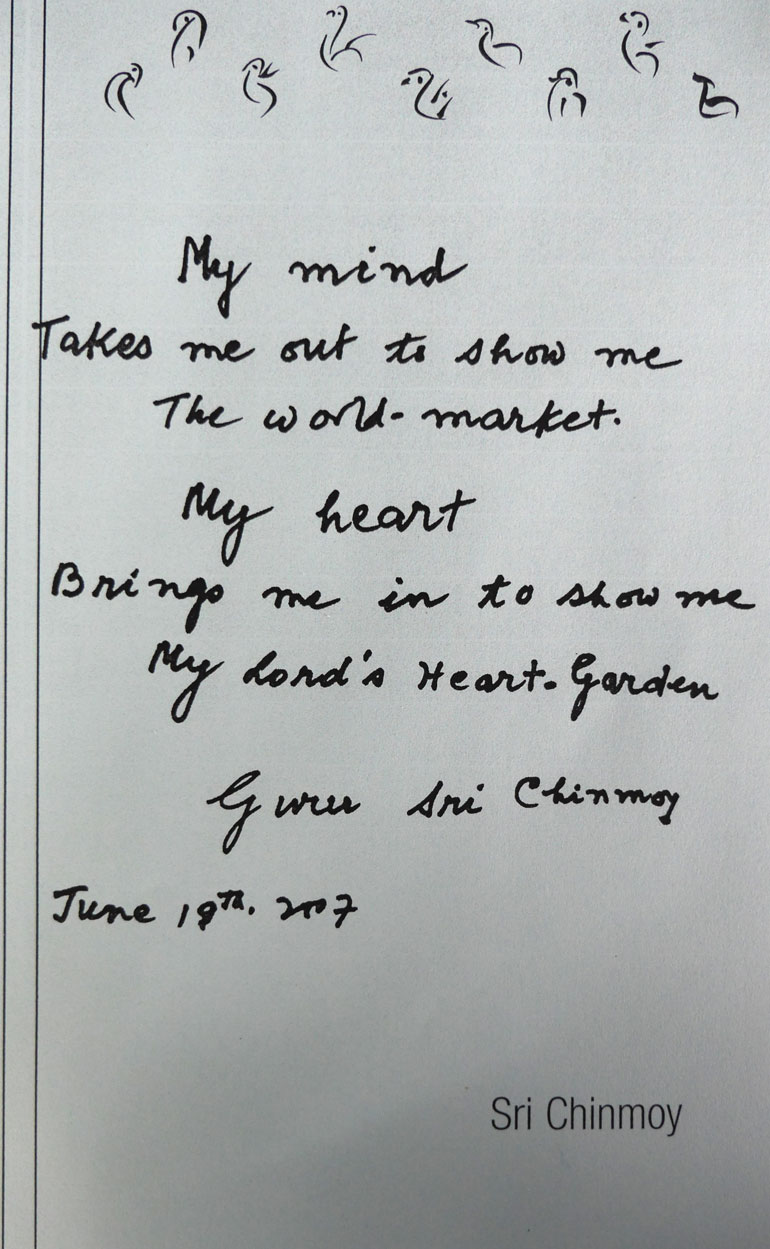 My mind
Takes me out to show me
The world-market.
My heart
Brings me in to show me
My Lord's Heart-Garden
Guru Sri Chinmoy
June 19th. 2007
Sri Chinmoy